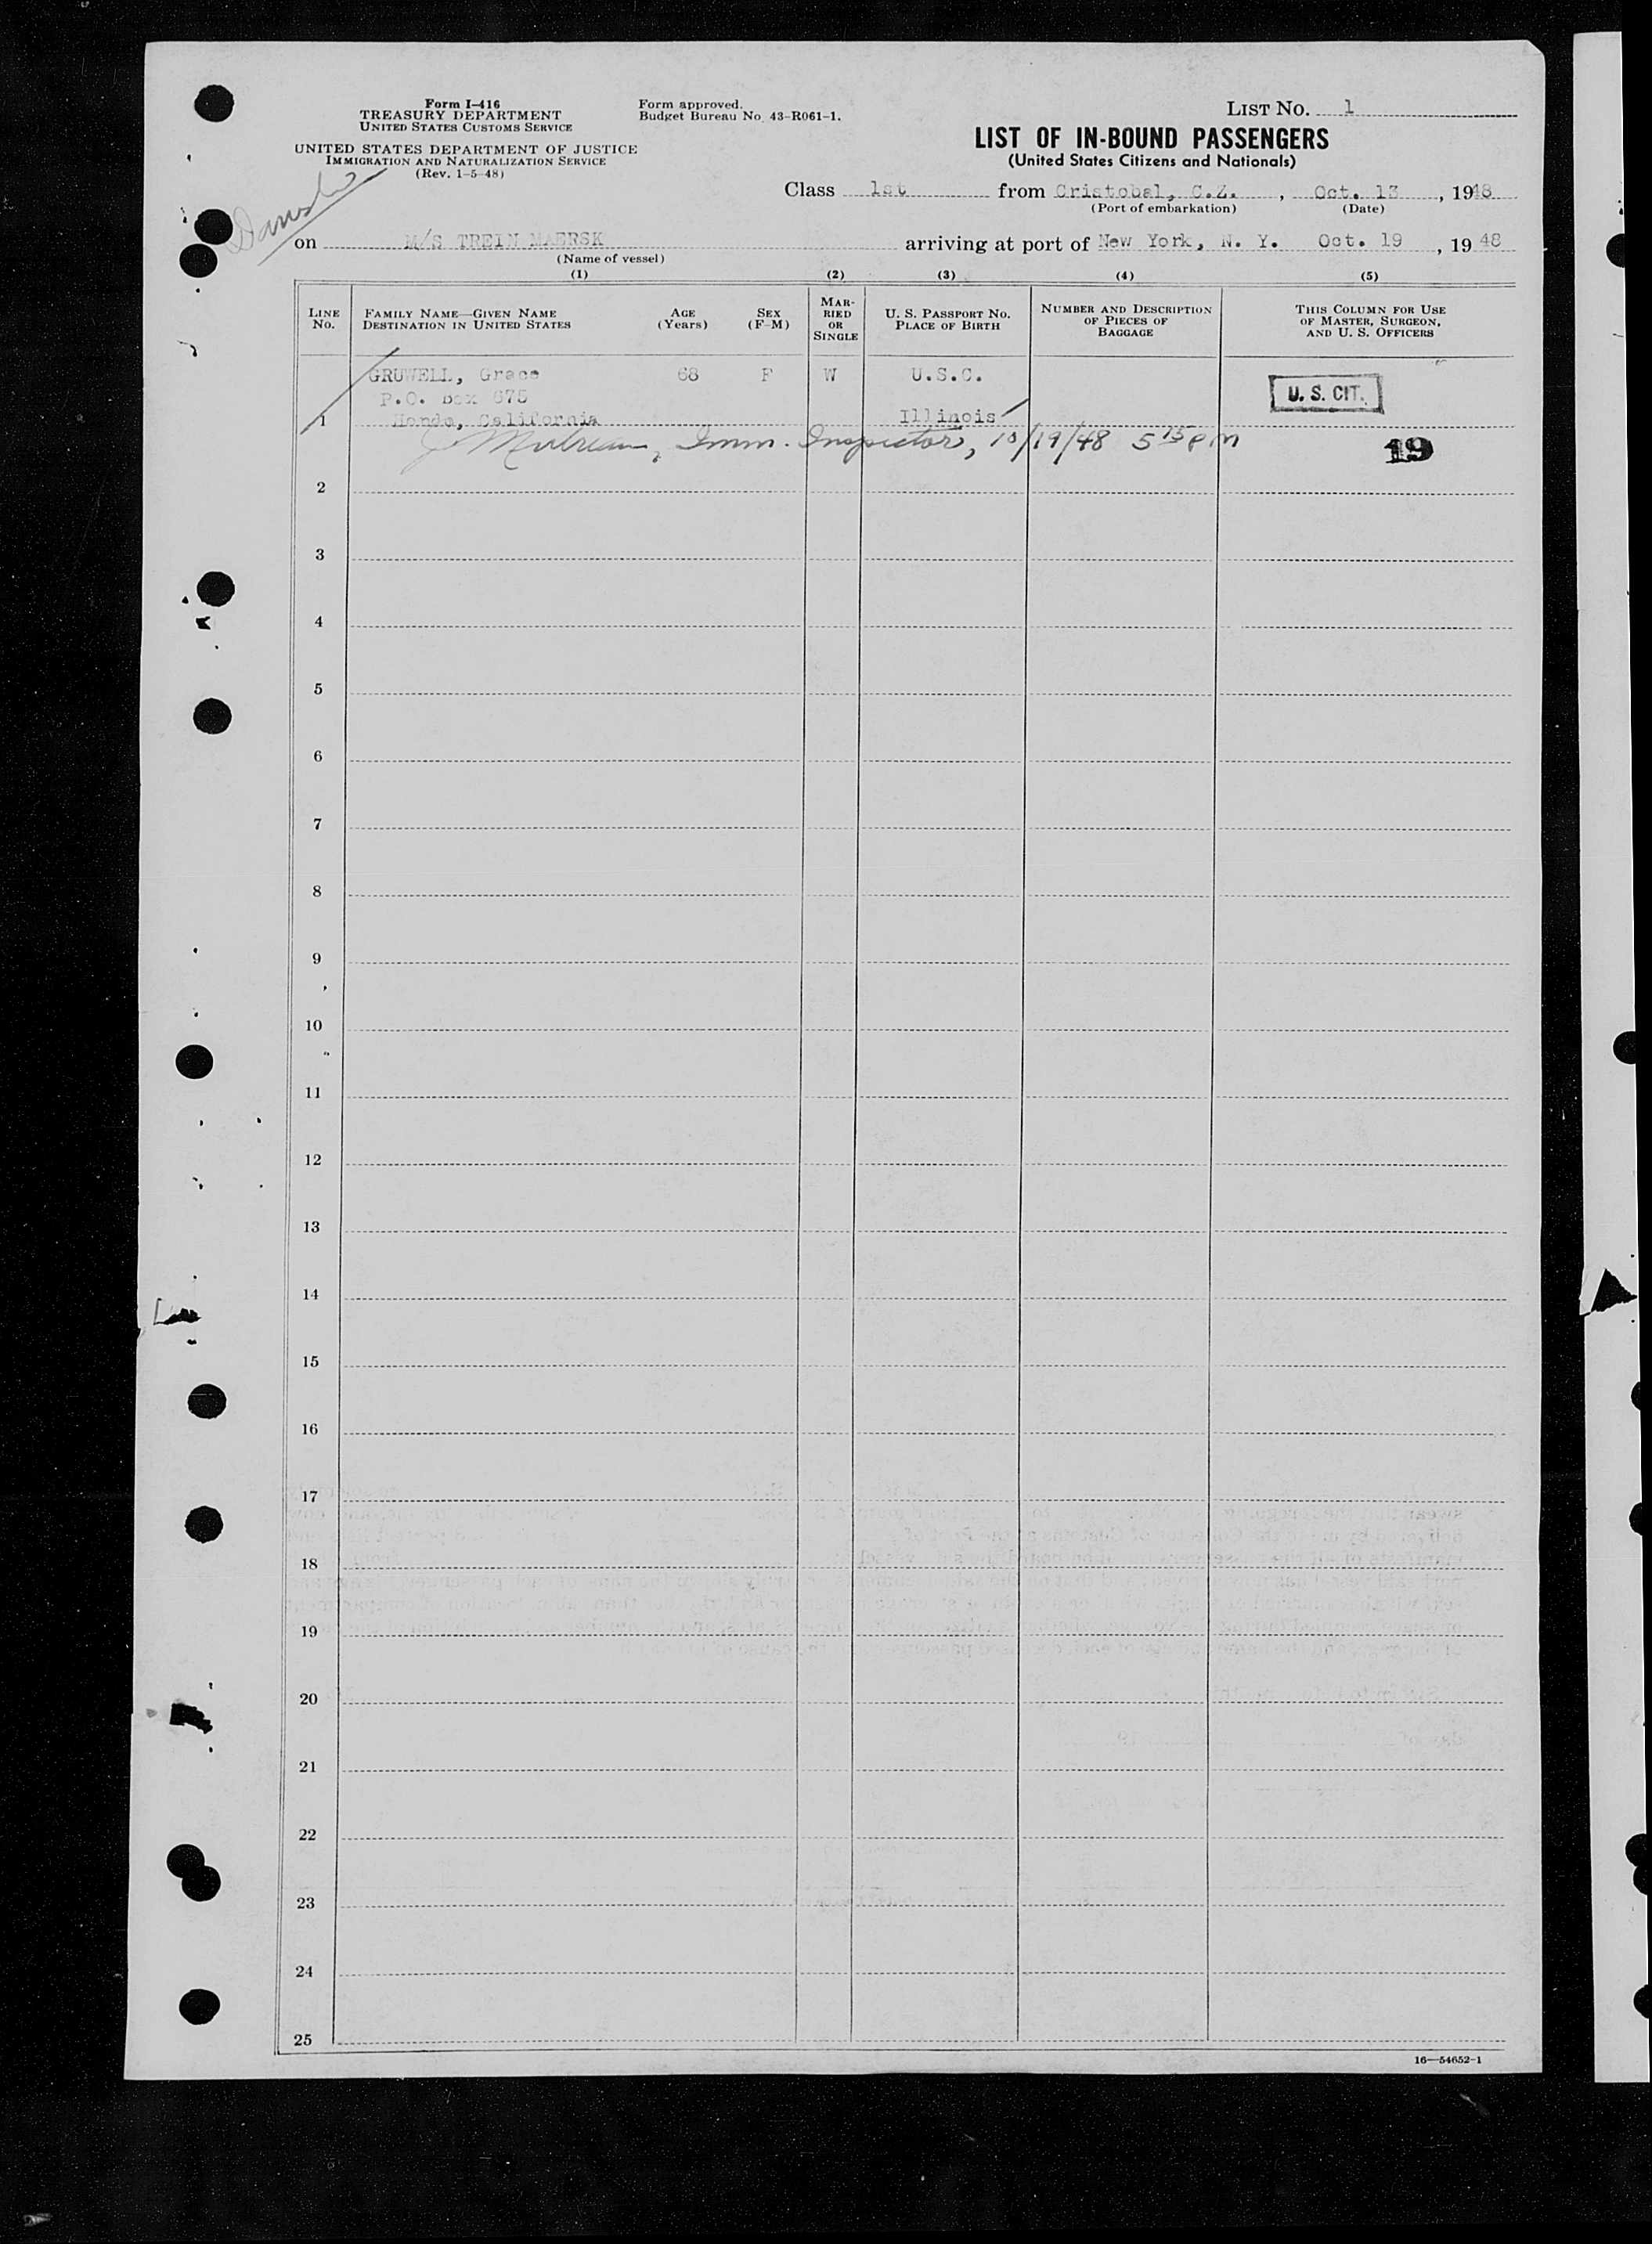 Form I-416
TREASURY DEPARTMENT
UNITED STATES CUSTOMS SERVICE
UNITED STATES DEPARTMENT OF JUSTICE
IMMIGRATION AND NATURALIZATION SERVICE
(Rev. 1-5-48)
Form approved.
Budget Bureau No. 43-R061-1.
LIST NO. 1
LIST OF IN-BOUND PASSENGERS
(United States Citizens and Nationals)
Danish
Class 1st from Cristobal, C.Z., Oct. 13, 1948
(Port of embarkation) (Date)
on M/S TREIN MAERSK arriving at port of New York, N. Y. Oct. 19, 1948
(Name of vessel)
(1) (2) (3) (4) (5)
LINE NO.
FAMILY NAME—GIVEN NAME
DESTINATION IN UNITED STATES
AGE
(Years)
SEX
(F-M)
MAR-
RIED
OR
SINGLE
U. S. PASSPORT NO.
PLACE OF BIRTH
NUMBER AND DESCRIPTION
OF PIECES OF
BAGGAGE
THIS COLUMN FOR USE
OF MASTER, SURGEON,
AND U. S. OFFICERS
GRUWELL, Grace 68 F W U.S.C.
U. S. CIT.
P.O. Box 675
1 California Illinois
Imm. Inspector, 10/19/48 5 15 PM
19
2
3
4
5
6
7
8
9
10
11
12
13
14
15
16
17
18
19
20
21
22
23
24
25
16—54652-1